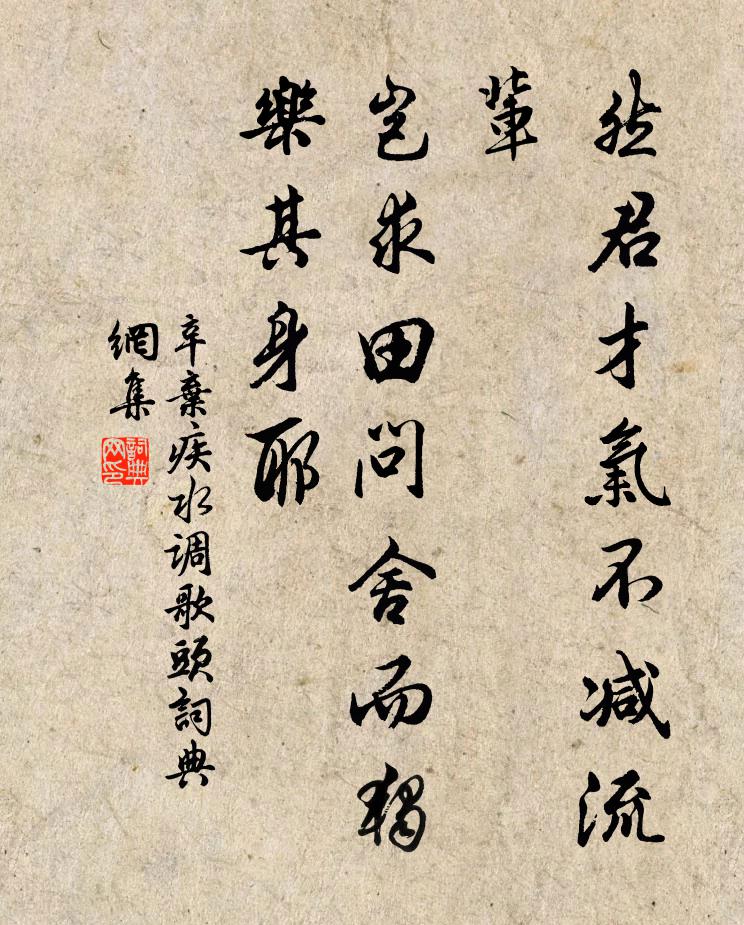 然君才氣不减流
輩
岂求田問舍而獨
樂其身耶
辛棄疾水调歌頭詞典
網集
詞典
网印